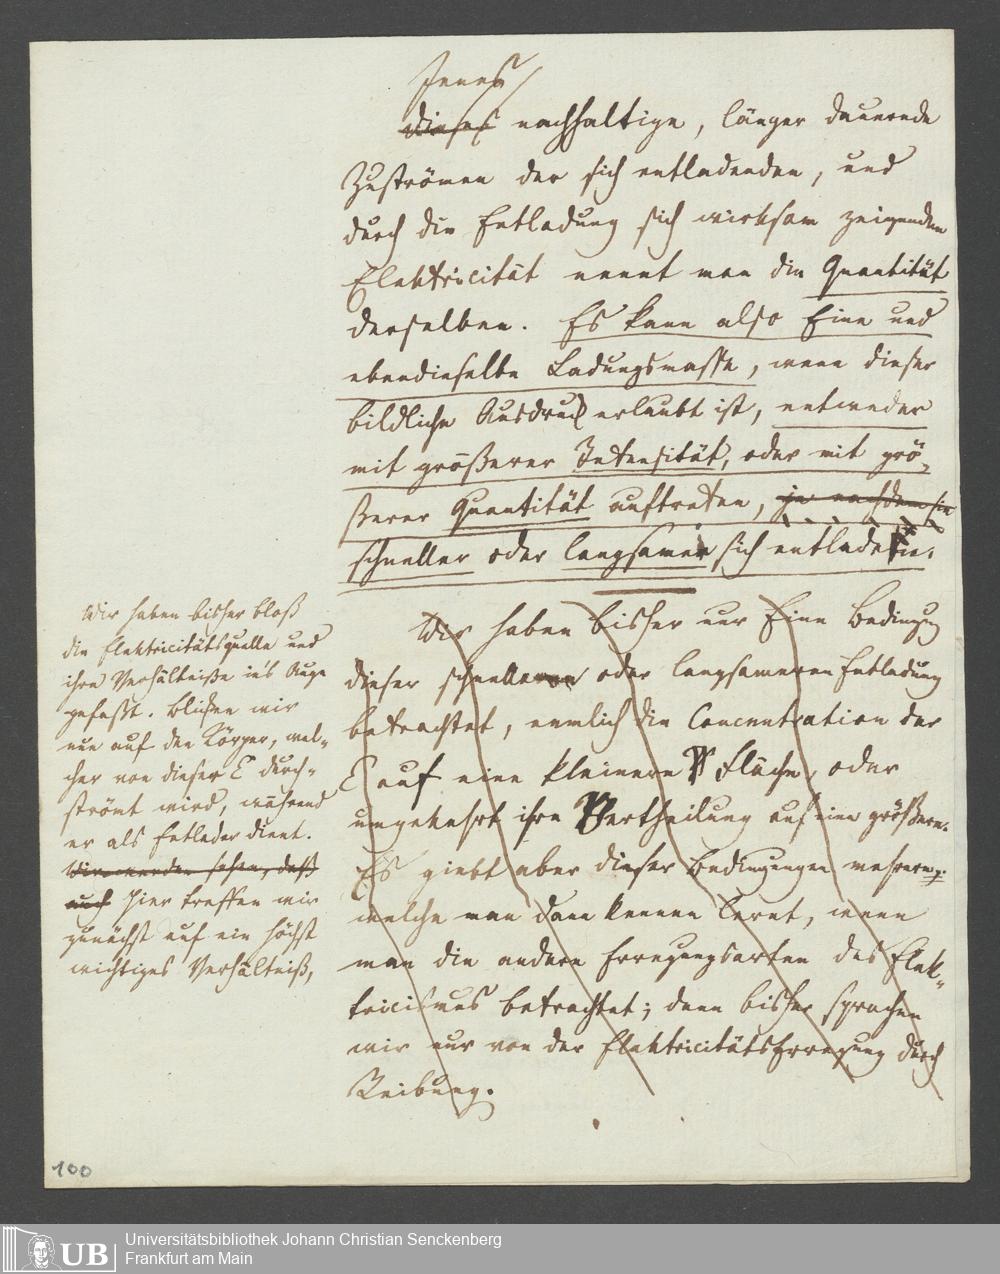 Jenes
dieses nachhaltige, länger dauernde
Zuströmen der sich entladenden, und
durch die Entladung sich wirksam zeigenden
Elektricität nennt man die Quantität
derselben. Es kann also Eine und
ebendieselbe Ladungsmasse, wenn dieser
bildliche Ausdruck erlaubt ist, entweder
mit größerer Intensität, oder mit grö-
ßerer Quantität auftreten, je nachdem sie
schneller oder langsamer sich entlade
Wir haben bisher nur Eine Bedingung
dieser schnelleren oder langsameren Entladung
betrachtet, nemlich die Concentration der
E auf eine kleinere Fläche, oder
umgekehrt ihre Vertheilung auf eine größere.
Es giebt aber dieser Bedingungen mehrere,
welche man dann kennen lernt, wenn
man die andern Erregungsarten des Elek-
tricismus betrachtet; denn bisher sprachen
wir nur von der Elektricitätserregung durch
Reibung.
Wir haben bisher bloß
die Elektricitätsquelle und
ihre Verhältniße in's Auge
gefaßt. Blicken wir
nun auf den Körper, wel-
cher von dieser E durch-
strömt wird, während
er als Entlader dient.
Wir werden sehen, daß
auch hier treffen wir
zunächst auf ein höchst
wichtiges Verhältniß,
100
UB
Universitätsbibliothek Johann Christian Senckenberg
Frankfurt am Main